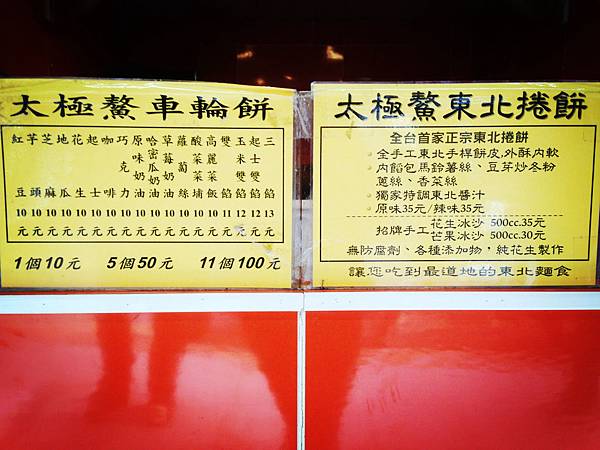 太極鰲車輪餅
紅豆 10元
芋頭 10元
芝麻 10元
地瓜 10元
花生 10元
起士 10元
咖啡 10元
巧克力 10元
原味奶油 10元
哈密瓜奶油 10元
草莓奶油 10元
蘿蔔絲 10元
酸菜菜埔 10元
高麗菜飯 10元
雙餡 11元
玉米雙餡 12元
起士雙餡 12元
三餡 13元
1個10元 5個50元 11個100元
太極鰲東北捲餅
全台首家正宗東北捲餅
全手工東北手桿餅皮,外酥內軟
內餡包馬鈴薯絲、豆芽炒冬粉
蔥絲、香菜絲
獨家特調東北醬汁
原味35元/辣味35元
招牌手工 花生冰沙 500cc.35元
芒果冰沙 500cc.30元
無防腐劑、各種添加物,純花生製作
讓您吃到最道地的東北麵食